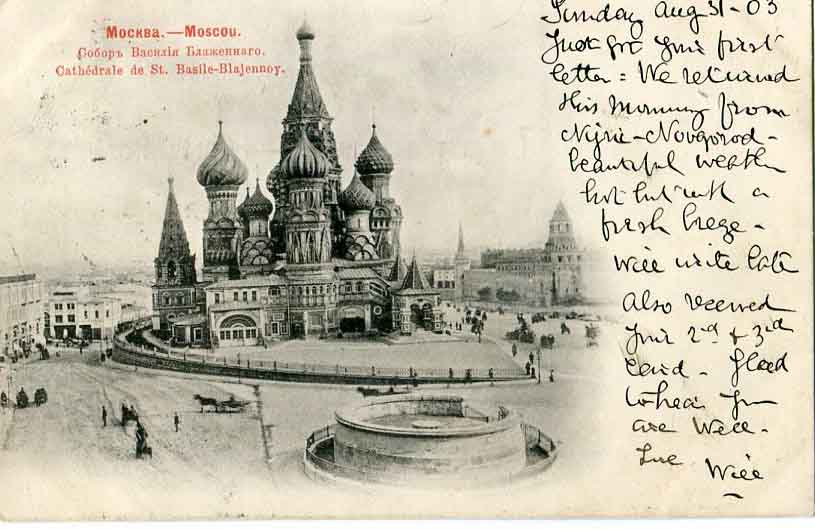 Москва.—Moscou.
Соборъ Василія Блаженнаго.
Cathédrale de St. Basile-Blajennoy.
Sunday Aug 31-03
Just got your first
letter = We returned
this morning from
Nijni-Novgorod-
beautiful weather
hot but with a
fresh breze -
Will write late
Also received
your 2nd & 3rd
card. Glad
to hear you
are well.
Will